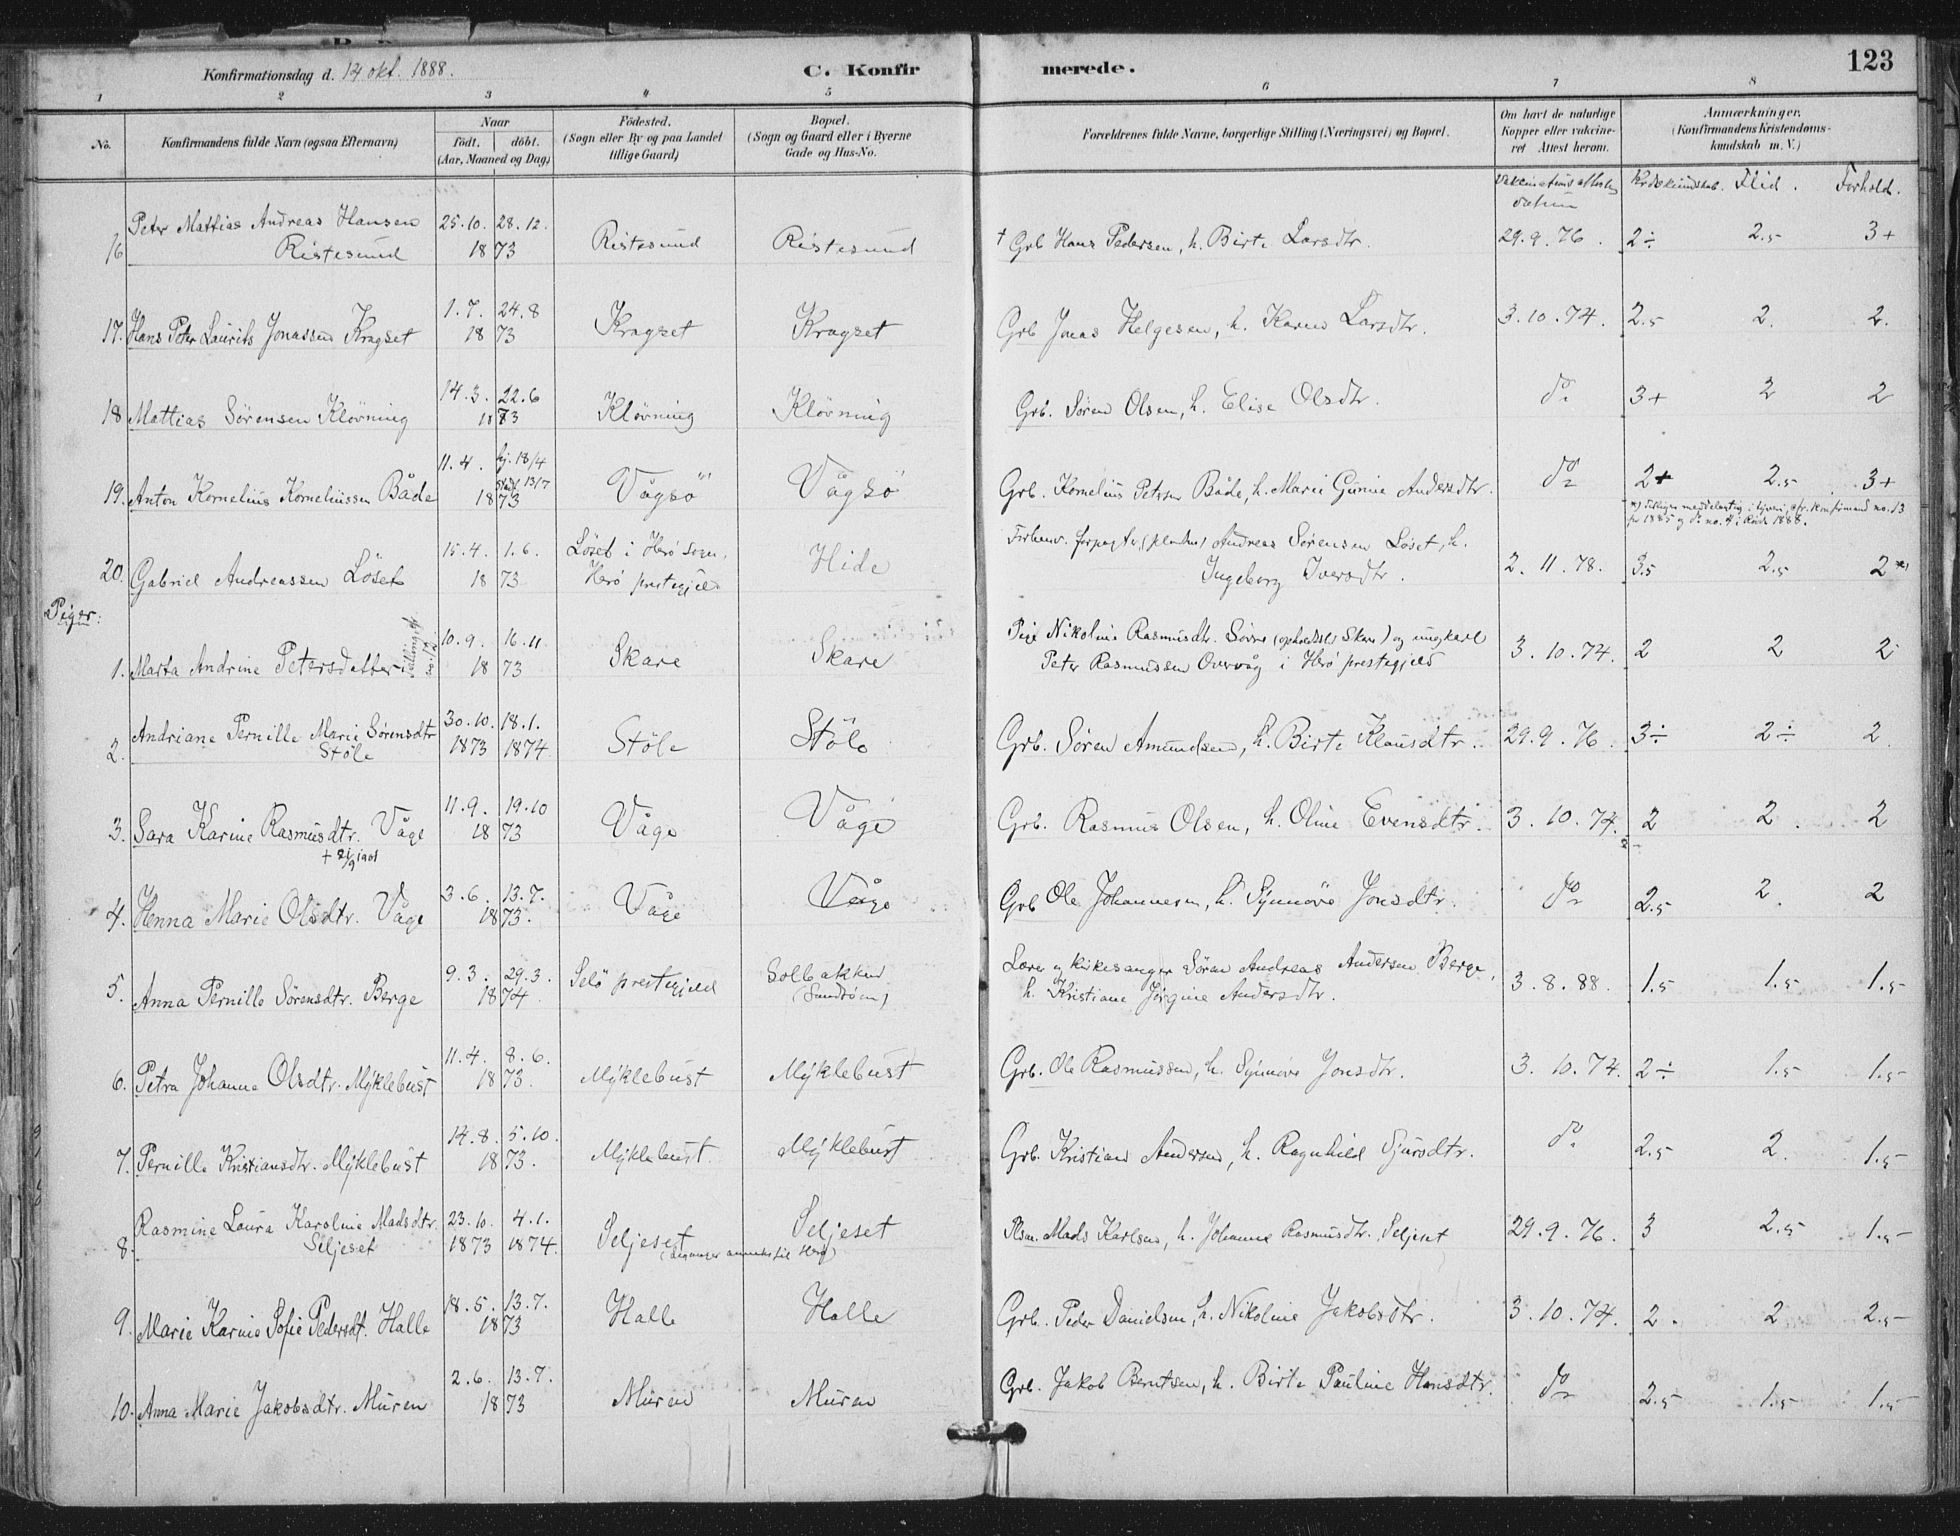 Konfirmationsdag d. 14 okt. 1888.
C. Konfirmerede.
123
1 2 3 4 5 6 7 8
No.
Konfirmandens fulde Navn (ogsaa Efternavn)
Naar
födt. döbt.
(Aar, Maaned og Dag)
Födested.
(Sogn eller By og paa Landet
tillige Gaard)
Bopæl.
(Sogn og Gaard eller i Byerne
Gade og Hus-No.
Forældrenes fulde Navne, borgerlige Stilling (Næringsvei) og Bopæl.
Om havt de naturlige
Kopper eller vakcine-
ret Attest herom.
Anmærkninger.
(Konfirmandens Kristendoms-
kundskab m. V.)
Flid. Forhold.
16 Peter Mattias Andreas Hansen 25.10. 28.12. Ristesund Ristesund † Grb Hans Pedersen, h. Birte Larsdtr. 29.9.76. 2÷ 2.5 3+
Ristesund 1873
17. Hans Peter Laurits Jonassen Kragset 1.7. 24.8 1873 Kragset Kragset Grb Jonas Helgesen, h. Karen Larsdtr. 3.10.74. 2.5 2. 2.
18 Mattias Sörensen Klövning 14.3. 22.6 1873 Klövning Klövning Grb. Sören Olsen, h. Elise Olsdtr. do 3+ 2 2
19. Anton Kornelius Korneliussen Både 11.4. hj. 18/4 13/7 1873 Vågsö Vågsö Grb. Kornelius Peters Både, h. Marie Gurine Andersdtr. do 2+ 2.5 3+
20. Gabriel Andreassen Löset 15.4. 1.6. 1873 Löset i Herö sogn, Hide Andreas Sörensen Löset, h.
Herö prestegjeld Ingeborg Iversdtr. 2.11.78. 3.5 2.5 2
Piger:
1. Marta Andrine Petersdatter 10.9. 16.11 1873 Skare Skare Pige Nikoline Rasmusdtr. Skare) og ungkarl
Peter Rasmussen Overvåg i Herö prestegjeld 3.10.74. 2 2 2
2. Andriane Pernille Marie Sörensdtr 30.10. 18.1. Stöle Stöle Grb. Sören Amundsen, h. Birte Klausdtr. 29.9.76. 3÷ 2÷ 2.
Stöle 1873 1874
3. Sara Karine Rasmusdtr. Våge 11.9. 19.10 1873 Våge Våge Grb. Rasmus Olsen, h. Oline Evensdtr. 3.10.74. 2 2. 2
4. Henna Marie Olsdtr. Våge 3.6. 13.7. 1873. Våge Våge Grb Ole Johannesen, h. Synnöve Jonsdtr. do 2.5 2. 2
5. Anna Pernille Sörensdtr. Berge 9.3. 29.3. 1874. Selö prestegjeld Solbakken Lærer og kirkesanger Sören Andreas Andersen Berge,
h. Kristiane Jörgine Andersdtr. 3.8.88. 1.5 1.5 1.5
6. Petra Johanne Olsdtr. Myklebust 11.4. 8.6. 1873. Myklebust Myklebust Grb. Ole Rasmussen, h. Synnöve Jonsdtr. 3.10.74. 2÷ 1.5 1.5
7. Pernille Kristiansdtr. Myklebust 14.8. 5.10. 1873. Myklebust Myklebust Grb. Kristian Andersen, h. Ragnhild Sjursdtr. do 2.5 2. 1.5
8. Rasmine Laura Karoline Madsdtr. 23.10. 4.1. Seljeset Seljeset Plsm. Mads Karlsen, h. Johanne Rasmusdtr. Seljeset 29.9.76. 3 2.5 1.5
Seljeset 1873 1874.
9. Marie Karine Sofie Pedersdt. Halle 18.5. 13.7. 1873 Halle Halle Grb. Peder Danielsen, h. Nikoline Jakobsdtr. 3.10.74. 2. 2 2.5
10. Anna Marie Jakobsdtr. Muren 2.6. 13.7. 1873 Muren Muren Grb. Jakob Berntsen, h. Birte Pauline Hansdtr. do 2.5 1.5 1.5